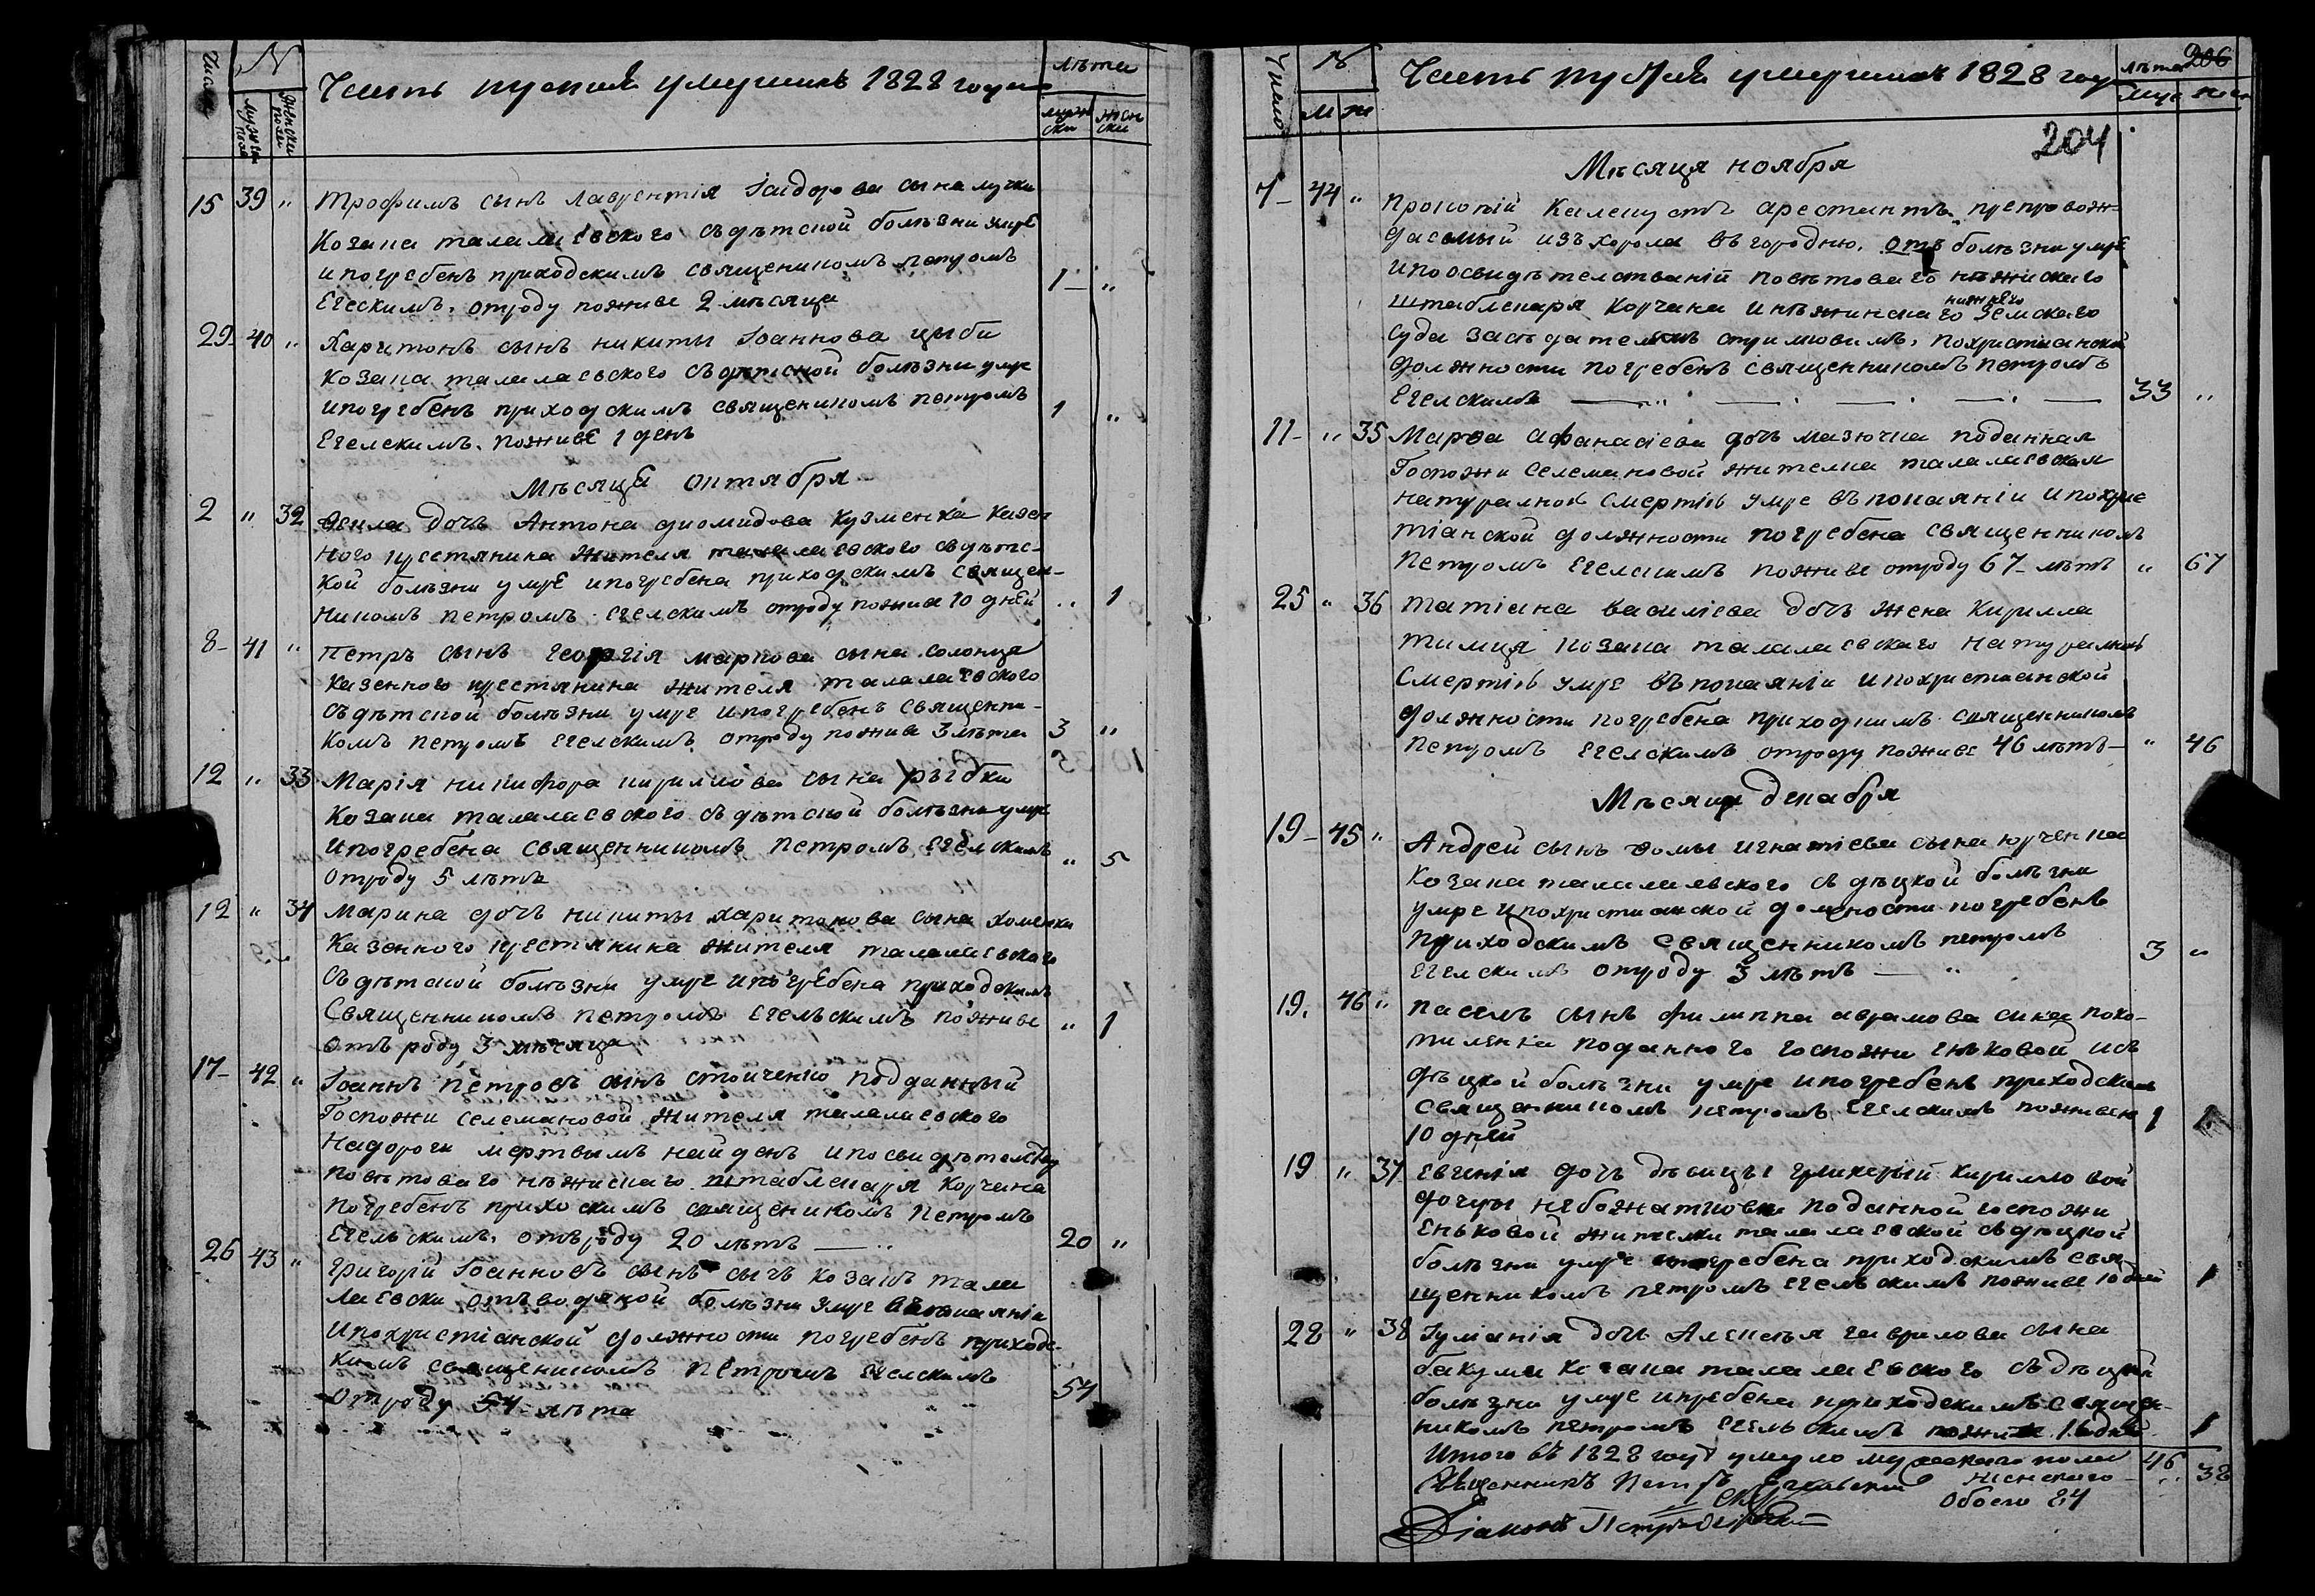 Число
N
Часть третія умершихъ 1828 года
лѣта
мужеска пола
женска пола
мужески
женски
15 39 „ Трофимъ сынъ Лаврентія Ісидорова сына лучки
козака талалаевского съ дѣтской болѣзни умре
и погребенъ приходскимъ священикомъ петромъ
Егелскимъ. отроду поживе 2 мѣсяца 1 „
29 40 „ Харитонъ сынъ никиты Іоаннова цыби
козака талалаевского съ дѣтской болѣзни умре
и погребенъ приходскимъ священикомъ петромъ 1 „
Егелскимъ. поживе 1 день
Мѣсяца октября
2 „ 32 Фекла дочь Антона диомидова кузменка казен
ного крестянина жителя талалаевского съ дѣтс-
кой болѣзни умре и погребена приходскимъ священ-
никомъ петромъ Егелскимъ отроду пожила 10 дней „ 1
8 41 „ петръ сынъ георгія маркова сына солонца
казенного крестянина жителя талалаевского
съ дѣтской болѣзни умре и погребенъ священи-
комъ петромъ Егелскимъ отроду поживе 3 лѣта 3 „
12 „ 33 Марія никифора кириллова сына рыбки
козака талалаевского съ дѣтской болѣзни умре
и погребена священникомъ петромъ Егелскимъ „ 5
отроду 5 лѣтъ
12 „ 34 Марина дочь никиты харитонова сына хоменка
казенного крестянина жителя талалаевского
съ дѣтской болѣзни умре и погребена приходскимъ
Священникомъ петромъ Егельскимъ поживе „ 1
отъ роду 3 мѣсяца
17 42 „ Іоаннъ петровъ сынъ стоиченко подданный
Госпожи Селемановой жителя талалаевского
на дороги мертвымъ найденъ и по свидѣтелству
повѣтоваго нѣжинскаго штаблекаря корчака
погребенъ приходскимъ священикомъ петромъ
Егельскимъ. отъ роду 20 лѣтъ 20 „
26 43 „ Григорій Іоанновъ сынъ сычъ козакъ тала
лаевски отъ водяной болѣзни умре въ покаяніи
и по христіанской должности погребенъ приходс-
кимъ священикомъ петромъ Егелскимъ
отроду 54 лѣта 54
Число
N
м ж
Часть третія умершихъ 1828 года
лѣта
муж жен
206
204
Мѣсяця ноября
7 44 „ прокопій каленусть арестантъ препровож-
даемый изъ хорола въ городню. отъ болѣзни умре
и по освидѣтелствaній повѣтоваго нѣжинскаго
штаблекаря корчака и нѣжинскаго нижнего земскаго
суда засѣдателемъ стримовимъ, по христианской
должности погребенъ священникомъ петромъ
Егелскимъ 33 „
11 „ 35 Марѳа афанасіева дочь мазючка поданная
Госпожи Селемановой жителка талалаевская
натуралною смертію умре въ покаяніи и по хрис
тіанской должности погребена священникомъ
петромъ Егелскимъ поживе отроду 67 лѣтъ „ 67
25 „ 36 татіана василіева дочь жена кирилла
тимця козака талалаевскаго натуралною
смертію умре въ покаяніи и по христианской
должности погребена приходскимъ священникомъ
петромъ Егелскимъ отроду поживе 46 лѣтъ „ 46
Мѣсяця декабря
19 45 „ Андрей сынъ Ѳомы игнатіева сына юрченка
козака талалаевского съ дѣцкой болѣзни
умре и по христианской должности погребенъ
приходскимъ священникомъ петромъ
Егелскимъ отроду 3 лѣтъ 3 „
19. 46 „ павелъ сынъ филиппа аврамова сина поко-
тиленка поданного госпожи еньковой изъ
дѣцкой болѣзни умре и погребенъ приходскимъ
священникомъ петромъ Егелскимъ поживе 1
10 дней
19 „ 37 Евгенія дочь дѣвицы гликерій кирилловой
дочеры небожатковни поданной госпожи
еньковой жителки талалаевской съ дѣцкой
болѣзни умре и погребена приходскимъ свя
щенникомъ петромъ Егельскимъ поживе 10 дней 1
28 „ 38 Іуліанія дочь Алексѣя гаврилова сына
бакума козака талалаевского съ дѣцкой
болѣзни умре и погребена приходскимъ священ-
никомъ петромъ Егельскимъ 16 дней 1
Итого въ 1828 году умерло мужескаго пола 46
Священникъ Петръ Егельский женскаго 38
обоего 84
Діаконъ Петръ